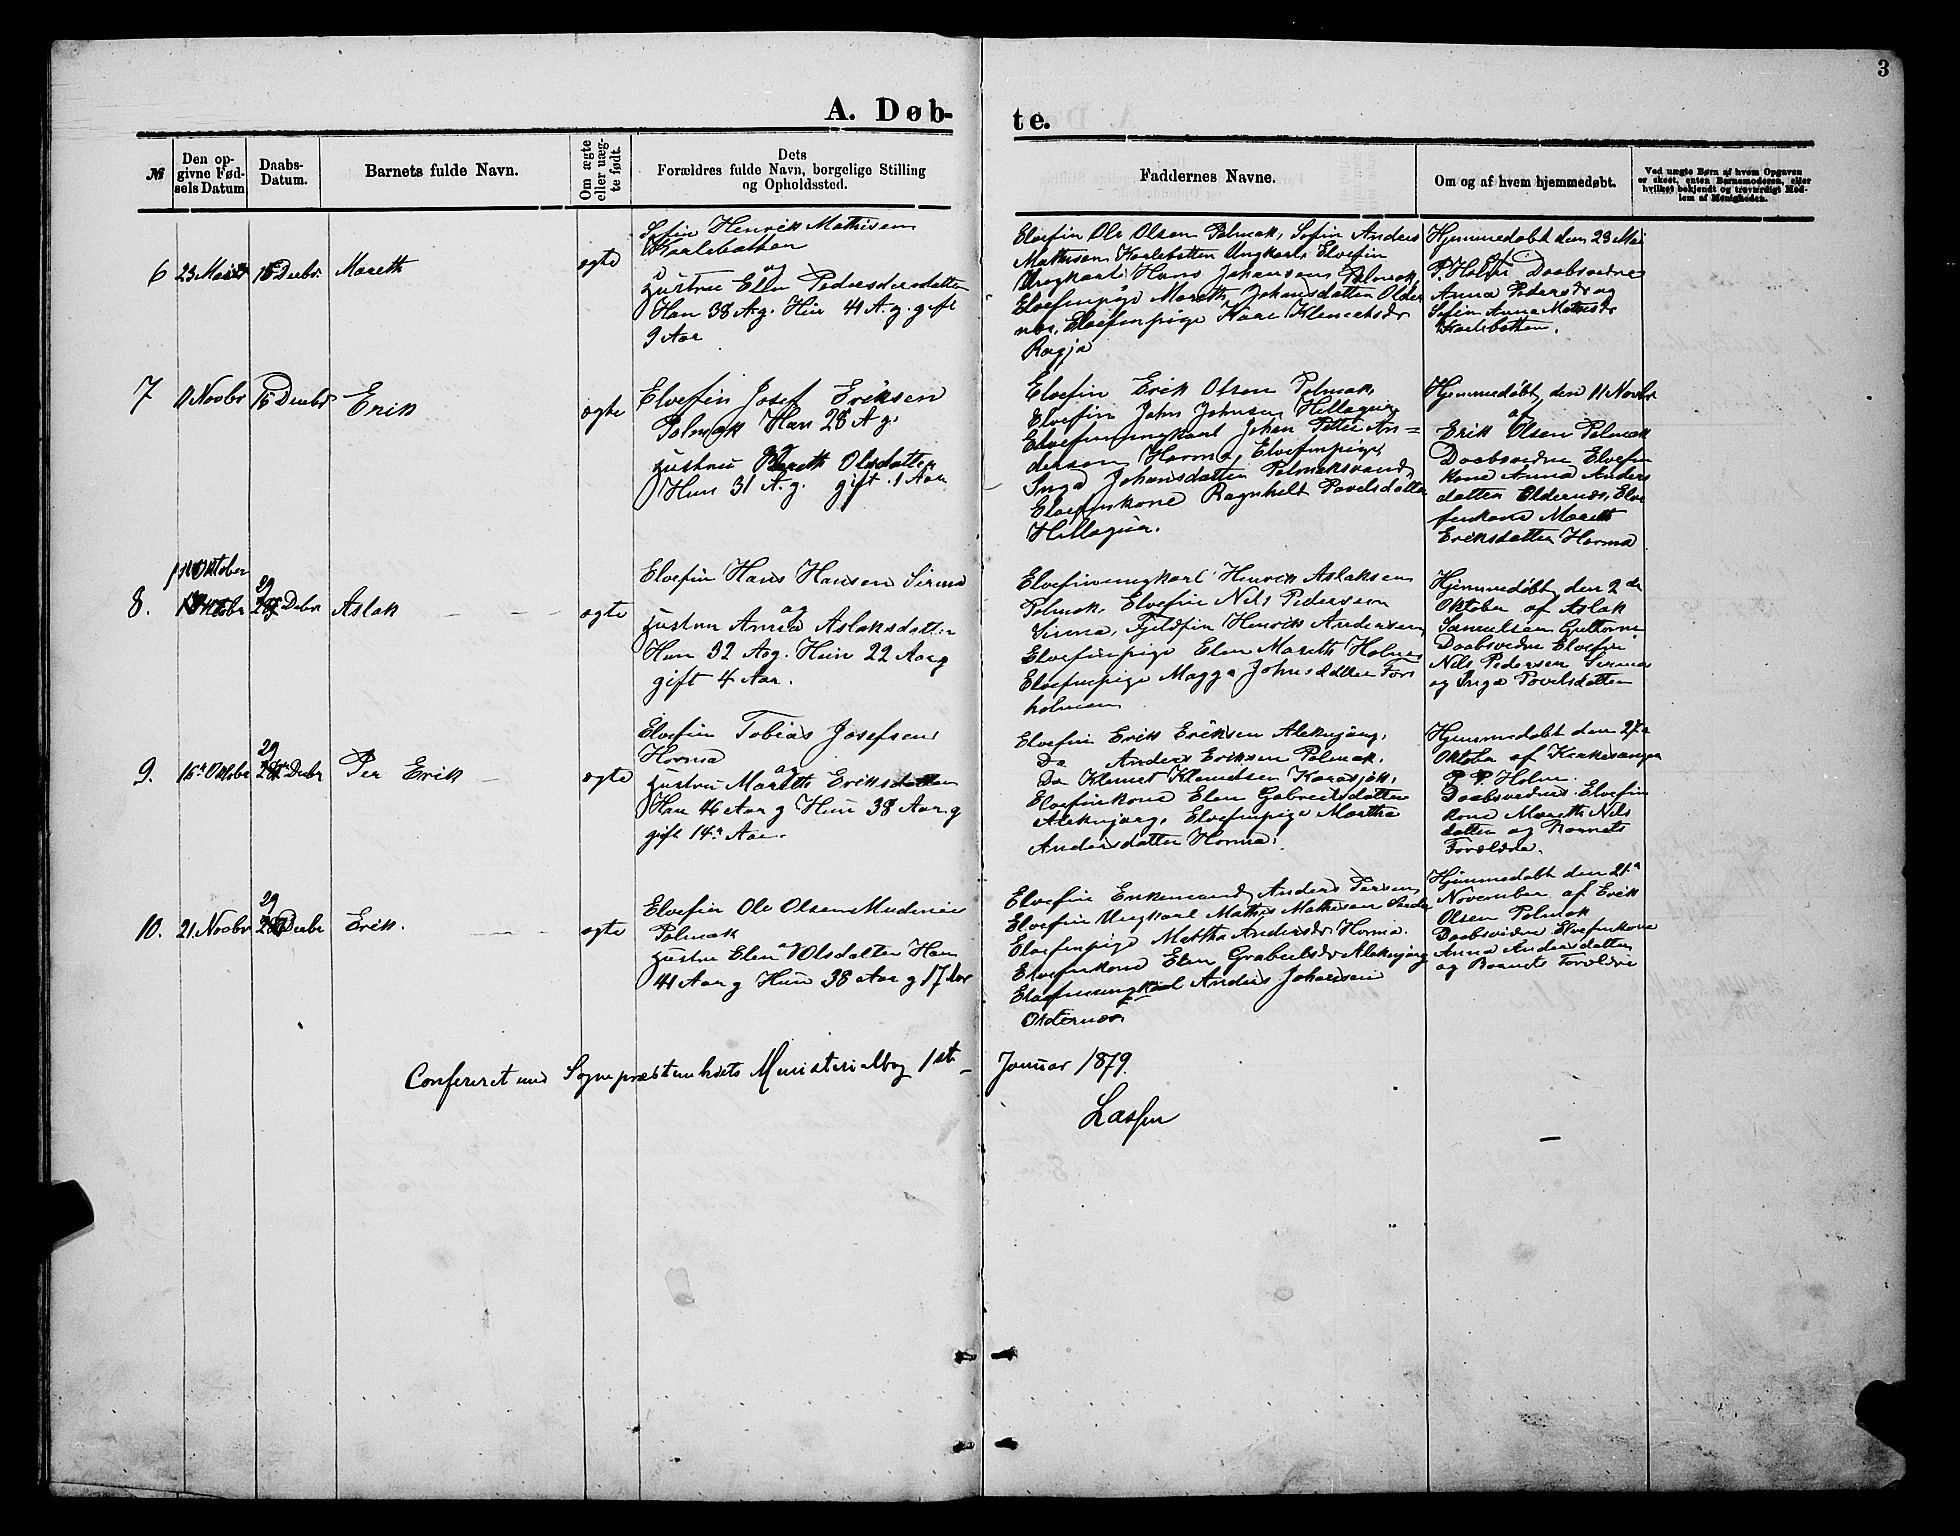 3
A. Døb-
te.
№
Den op-
givne Fød-
sels Datum
Daabs-
Datum.
Barnets fulde Navn.
Om ægte
eller uæg-
te født.
Dets
Forældres fulde Navn, borgelige Stilling
og Opholdssted.
Faddernes Navne.
Om og af hvem hjemmedøbt.
Ved uægte Børn af hvem Opgaven
er skeet, enten Børnemoderen, eller
hvilket bekjendt og troværdigt Med-
lem af Menigheden.
6
23 Mai
15 Decbr
Mareth
ogte
Søfin Henrik Mathisen
Karlebotten
og
Hustru Ellen Pedersdatter
Han 38 A.g. Hun 41 A.g. gift
9 Aar
Elvefin Ole Olsen Polmak, Søfin Anders
Mathisen Karlebotten Ungkarl, Elvefin
Ungkarl Hans Johansen Polmak,
Elvefinpige Mareth Johansdatter Older
næs, Elvefinpige Kare Klemetsdr
Ragja
Hjemmedøbt den 23 Mai
af
P. Holm Daabsvidne
Anna Pedersdr og
Søfin Anna Mathisdr
Karlebotten.
7
11 Novbr
15 Decbr
Erik
ogte
Elvefin Josef Eriksen
Polmak Han 28 A.g.
Hustru Mareth Olsdatter
Hun 31 A.g. gift 1 Aar
Elvefin Erik Olsen Polmak,
Elvefin John Johnsen Hillagur
Elvefinungkarl Johan Petter An=
dersen Horma, Elvefinpige
Inga Johansdatter Polmaksvand
Elvefinkone Ragnhelt Povelsdatter
Hillagur.
Hjemmedøbt den 11 Novbr
af
Erik Olsen Polmak
Daabsvidne Elvefin
kone Anna Anders
datter Oldernæs, Elve
finkone Mareth
Eriksdatter Horma
8.
1 Oktober
29 Decbr
Aslak
ogte
Elvefin Hans Hansen Sirma
og
Hustru Anna Aslaksdatter
Han 32 Aar g. Hun 22 Aar g
gift 4 Aar.
Elvefinungkarl Henrik Aslaksen
Polmak, Elvefin Nils Pedersen
Sirma, Fjeldfin Henrik Andersen,
Elvefinpige Elen Mareth Holm
Elvefinpige Magga Johnsdatter Fors
holmen
Hjemmedøbt den 2den
Oktober af Aslak
Samuelsen Guttorm
Daabsvidne Elvefin
Nils Pedersen Sirma
og Inga Povelsdatter
9.
16 Oktbr
29 Decbr
Per Erik
ogte
Elvefin Tobias Josefsen
Horma
og
Hustru Mareth Eriksdatter
Han 46 Aar g Hun 38 Aar g
gift 14 Aar.
Elvefin Erik Eriksen Aleknjarg,
Do Anders Eriksen Polmak,
Do Klemet Klemetsen Karasjok,
Elvefinkone Elen Gabrielsdatter
Aleknjarg, Elvefinpige Martha
Andersdatter Horma.
Hjemmedøbt den 27
Oktober af Kirkesanger
P. P. Holm.
Daabsvidner Elvefin
kone Mareth Nils
datter og Barnets
Forældre.
10.
21 Novbr
29 Decbr
Erik.
ogte
Elvefin Ole Olsen
Polmak
og
Hustru Elen Olsdatter Han
41 Aar g Hun 38 Aar g 17 Aar
Elvefin Enkemand Anders Persen
Elvefin Ungkarl Mathis Mathisen
Elvefinpige Martha Andersdr Horma.
Elvefinkone Elen Grabielsdr Aleknjarg
Elvefinungkarl Anders Johansen
Oldernæs
Hjemmedøbt den 21
November af Erik
Olsen Polmak
Daabsvidne Elvefinkone
Anna Andersdatter
og Barnets Forældre
Confereret med Sogneprestembedets Ministerialbog 1st Januar 1879.
Lassen